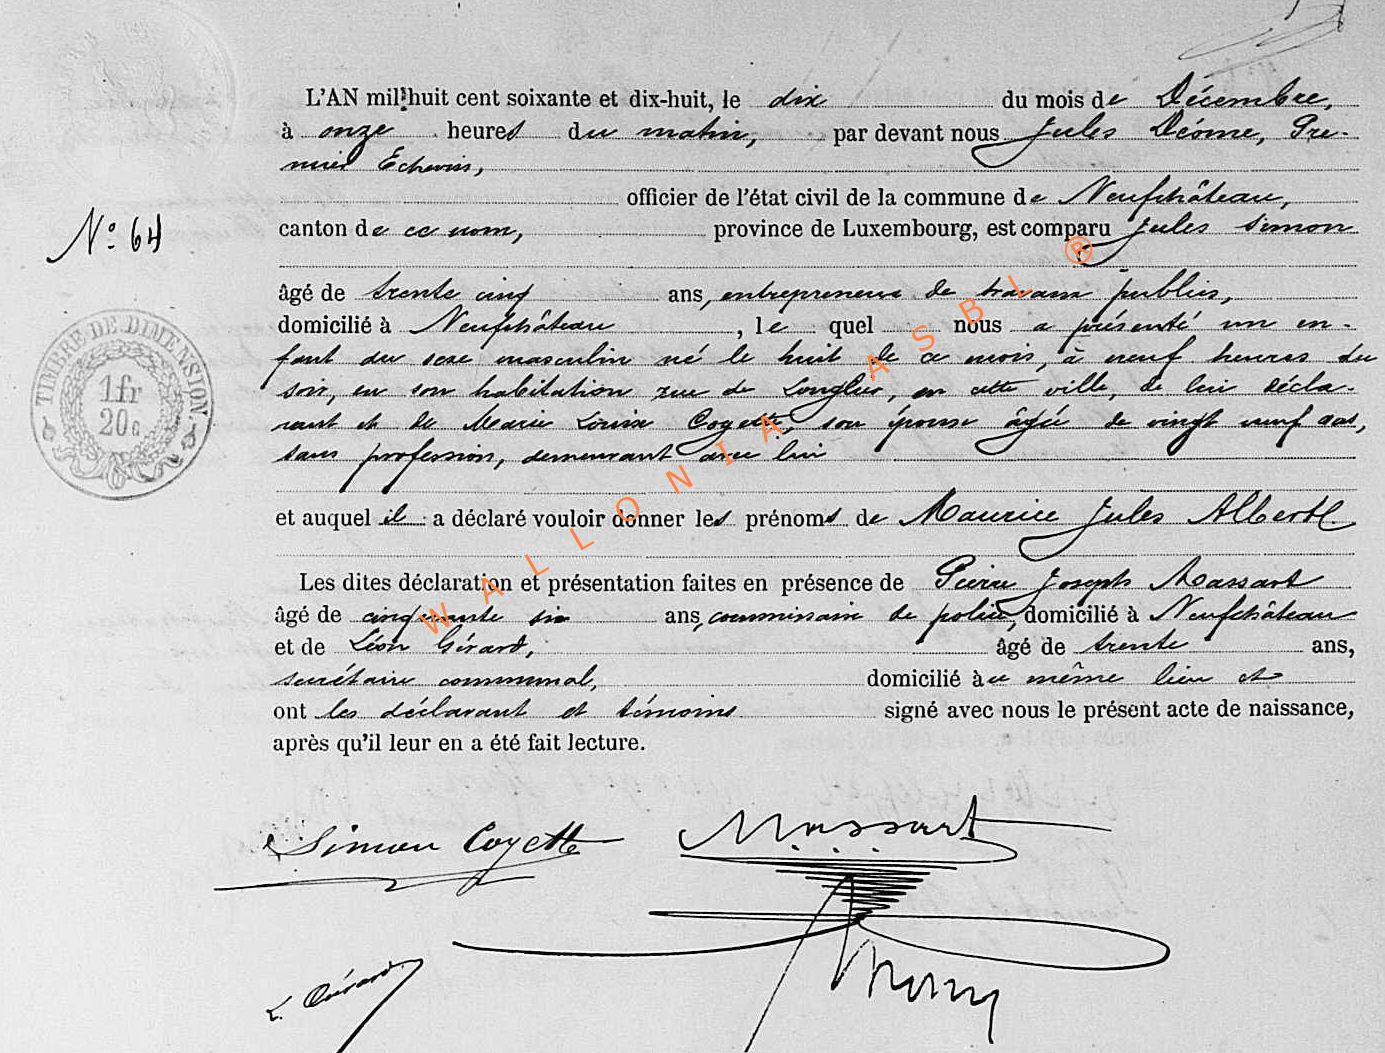 L'AN mil huit cent soixante et dix-huit, le dix du mois de Décembre,
à onze heures du matin, par devant nous Jules Déome, Pre-
mier Echevin,
officier de l'état civil de la commune de Neufchâteau,
N° 64
canton de ce nom, province de Luxembourg, est comparu Jules Simon
âgé de trente cinq ans, entrepreneur de travaux publics,
domicilié à Neufchâteau, le quel nous a présenté un en-
fant du sexe masculin né le huit de ce mois, à neuf heures du
soir, en son habitation rue de Longlier, en cette ville, de lui décla-
rant et de Marie Louise Coyette, son épouse âgée de vingt neuf ans,
sans profession, demeurant avec lui
TIMBRE DE DIMENSION.
1 fr
20 c
et auquel il a déclaré vouloir donner les prénoms de Maurice Jules Albert
Les dites déclaration et présentation faites en présence de Pierre Joseph Massart
âgé de cinquante six ans, commissaire de police, domicilié à Neufchâteau
et de Léon Gérard, âgé de trente ans,
secrétaire communal, domicilié à ce même lieu et
ont les déclarant et témoins signé avec nous le présent acte de naissance,
après qu'il leur en a été fait lecture.
WALLONIA ASBL ®
Simon Coyette Massart
L. Gérard